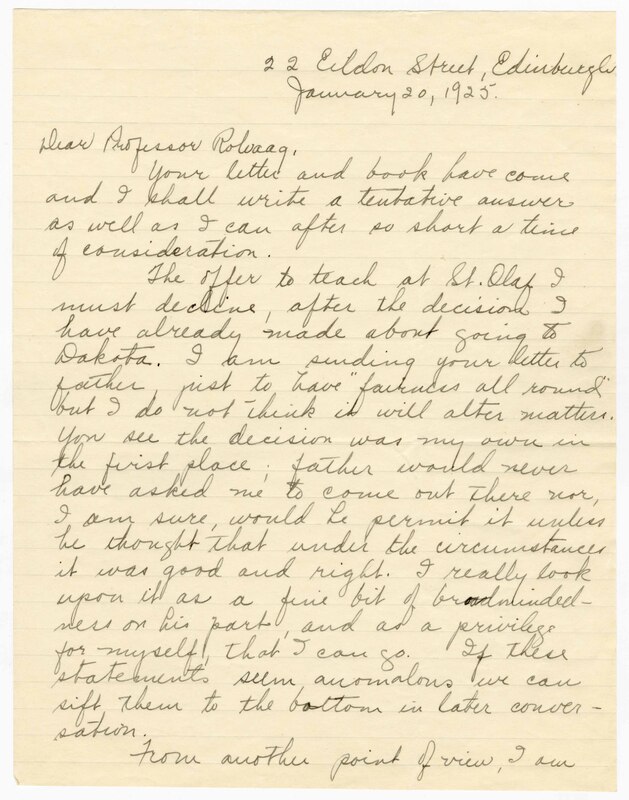 22 Eildon Street, Edinburgh
January 20, 1925.
Dear Professor Rolvaag,
Your letter and book have come
and I shall write a tentative answer
as well as I can after so short a time
of consideration.
The offer to teach at St. Olaf I
must decline, after the decision I
have already made about going to
Dakota. I am sending your letter to
father, just to have "fairness all round"
but I do not think it will alter matters.
You see the decision was my own in
the first place; father would never
have asked me to come out there nor,
I am sure, would he permit it unless
he thought that under the circumstances
it was good and right. I really look
upon it as a fine bit of broadminded-
ness on his part, and as a privilege
for myself, that I can go. If these
statements seem anomalous we can
sift them to the bottom in later conver-
sation.
From another point of view, I am